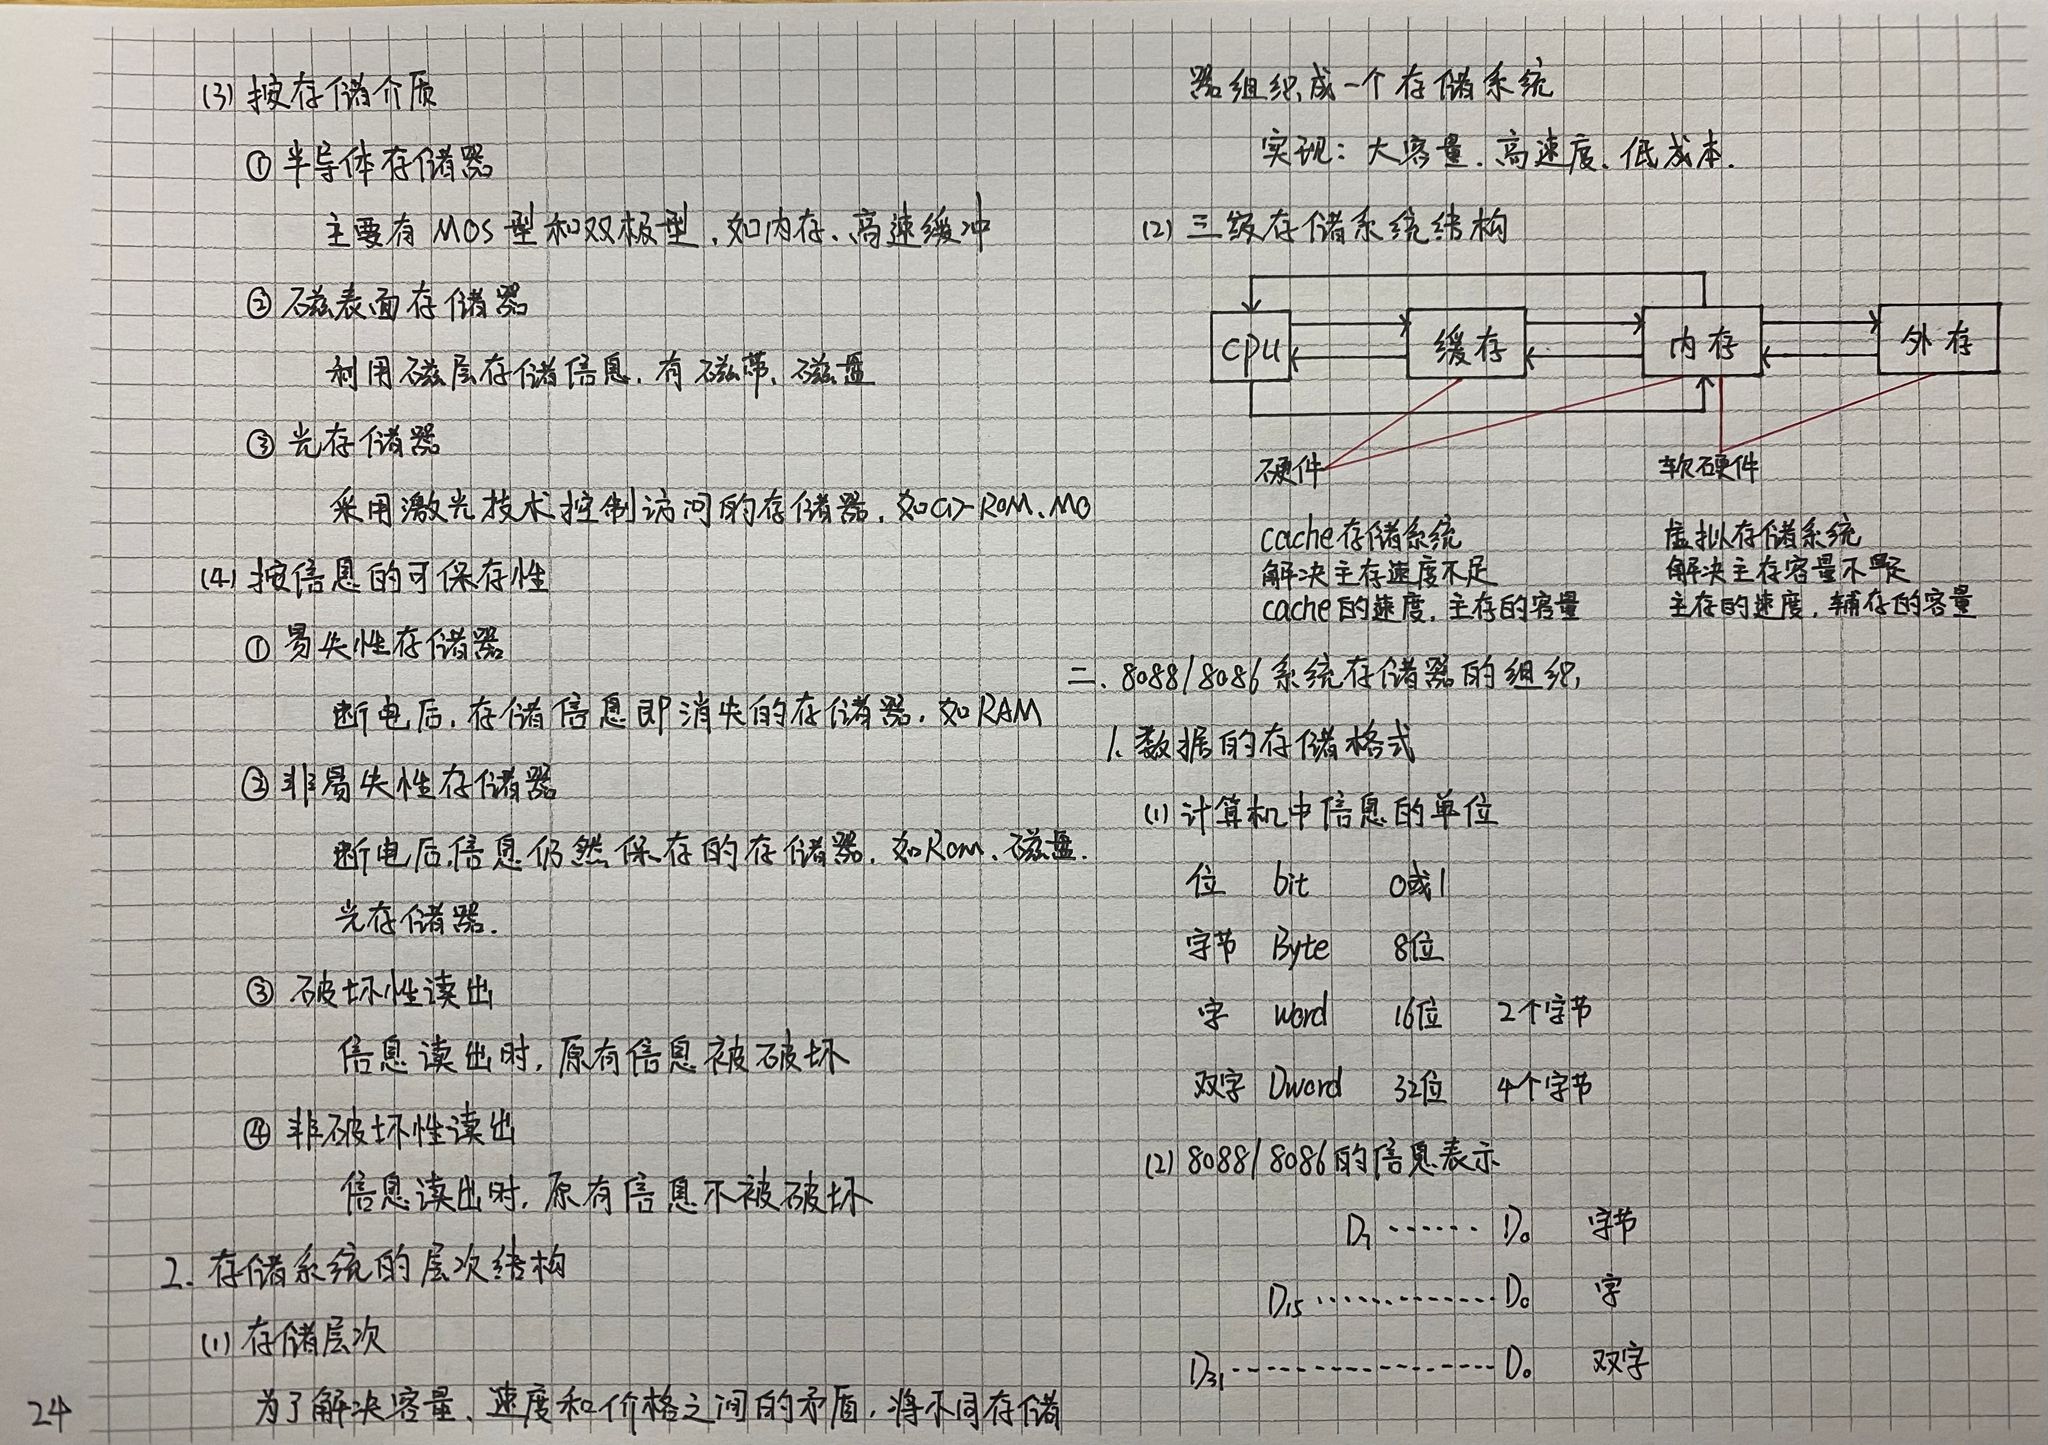 (3) 按存储介质
① 半导体存储器
主要有 MOS 型和双极型、如内存、高速缓冲
② 磁表面存储器
利用磁层存储信息、有磁带、磁盘
③ 光存储器
采用激光技术控制访问的存储器、如CD-ROM、MO
(4) 按信息的可保存性
① 易失性存储器
断电后, 存储信息即消失的存储器、如RAM
② 非易失性存储器
断电后,信息仍然保存的存储器、如Rom、磁盘、
光存储器.
③ 破坏性读出
信息读出时, 原有信息被破坏
④ 非破坏性读出
信息读出时, 原有信息不被破坏
2. 存储系统的层次结构
(1) 存储层次
为了解决容量、速度和价格之间的矛盾, 将不同存储
24
器组织成一个存储系统
实现: 大容量、高速度、低成本.
(2) 三级存储系统结构
CPU 缓存 内存 外存
硬件 软硬件
cache存储系统
解决主存速度不足
cache的速度, 主存的容量
虚拟存储系统
解决主存容量不足
主存的速度, 辅存的容量
二、8088/8086系统存储器的组织
1. 数据的存储格式
(1) 计算机中信息的单位
位 bit 0或1
字节 Byte 8位
字 word 16位 2个字节
双字 Dword 32位 4个字节
(2) 8088/8086的信息表示
D7 ...... D0 字节
D15 ............ D0 字
D31 ................. D0 双字